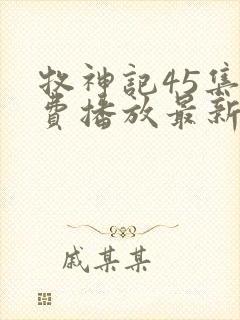 牧神记45集
费播放最新
戚某某